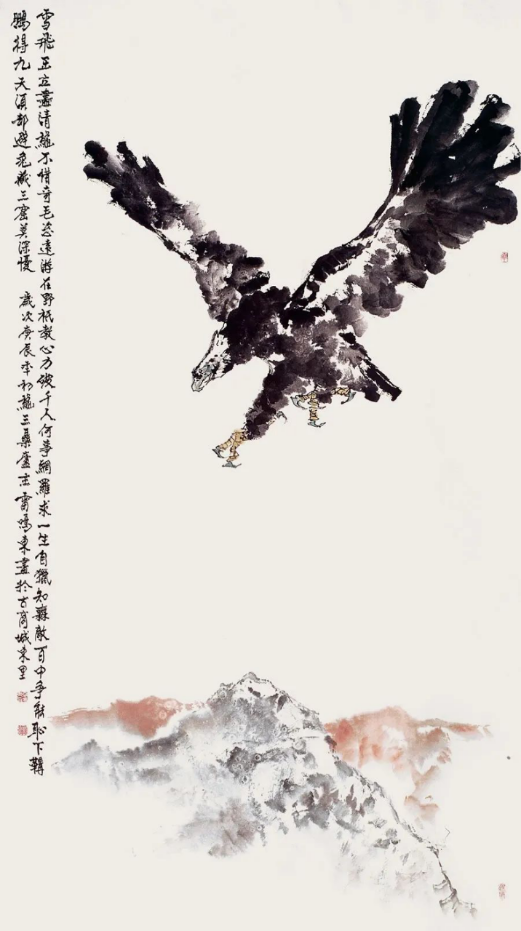 雪飛玉立盡清龝不惜奇毛恣遠游在野衹教心力破千人何事網羅求一生自獵知無敵百中爭能恥下鞲
鵬礙九天須却避兔藏三窟莫深憂 歲次庚辰年初龝三桑廬主雷鳴東畫於古商城東里